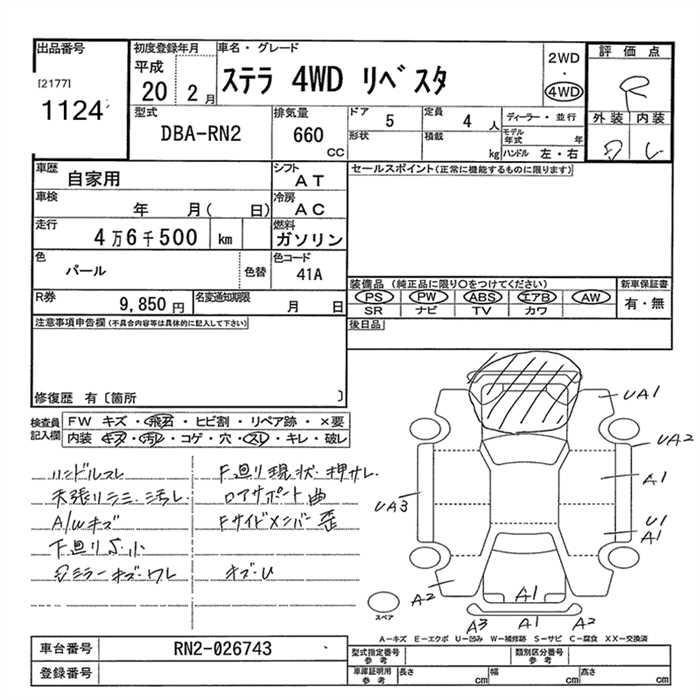 出品番号
[2177]
1124
初度登録年月
平成
20 2 月
車名・グレード
ステラ 4WD リベスタ
2WD
・
4WD
評価点
R
外装 内装
D し
型式
DBA-RN2
排気量
660
CC
ドア
5
定員
4 人
形状
積載
kg
ディーラー・並行
モデル
年式 年
ハンドル 左・右
車歴
自家用
シフト
AT
車検
年 月( 日)
冷房
AC
走行
4万6千500 km
燃料
ガソリン
色
パール
色替
色コード
41A
R券
9,850 円
名変通知期限
月 日
セールスポイント(正常に機能するものに限ります)
装備品(純正品に限り○をつけてください)
PS PW ABS エアB AW
SR ナビ TV カワ
新車保証書
有・無
後日品
注意事項申告欄(不具合内容等は具体的に記入して下さい)
修復歴 有〔箇所 〕
検査員
記入欄
FW キズ・飛石・ヒビ割・リペア跡・×要
内装 キズ・汚れ・コゲ・穴・スレ・キレ・破レ
ハンドルスレ
天張リシミ・汚レ
A/Wキズ
下廻りS.小
ミラーキズ・ワレ
F廻り現状・押サレ
ロアサポート曲
Fサイドメンバー歪
キズ・U
UA1
UA2
A1
UA3
U1
A1
A2
A1
A3 A1 A2
スペア
A―キズ E―エクボ U―凹み W―補修跡 S―サビ C―腐食 XX―交換済
車台番号
RN2-026743
登録番号
型式指定番号
参考
類別区分番号
参考
車庫証明用
参考
長さ cm
幅 cm
高さ cm